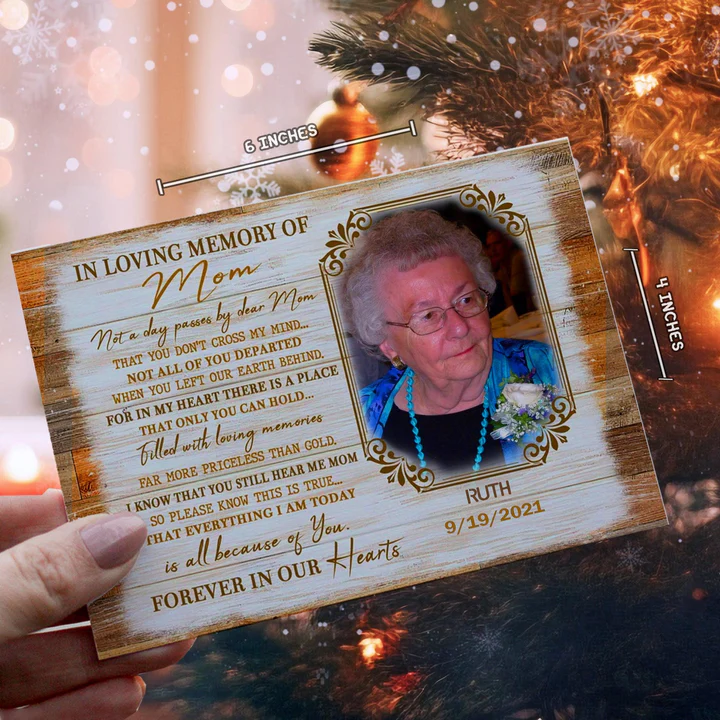 6 INCHES
4 INCHES
IN LOVING MEMORY OF
Mom
Not a day passes by dear Mom
THAT YOU DON'T CROSS MY MIND...
NOT ALL OF YOU DEPARTED
WHEN YOU LEFT OUR EARTH BEHIND,
FOR IN MY HEART THERE IS A PLACE
THAT ONLY YOU CAN HOLD...
Filled with loving memories
FAR MORE PRICELESS THAN GOLD,
I KNOW THAT YOU STILL HEAR ME MOM
SO PLEASE KNOW THIS IS TRUE...
THAT EVERYTHING I AM TODAY
is all because of You.
FOREVER IN OUR Hearts
RUTH
9/19/2021